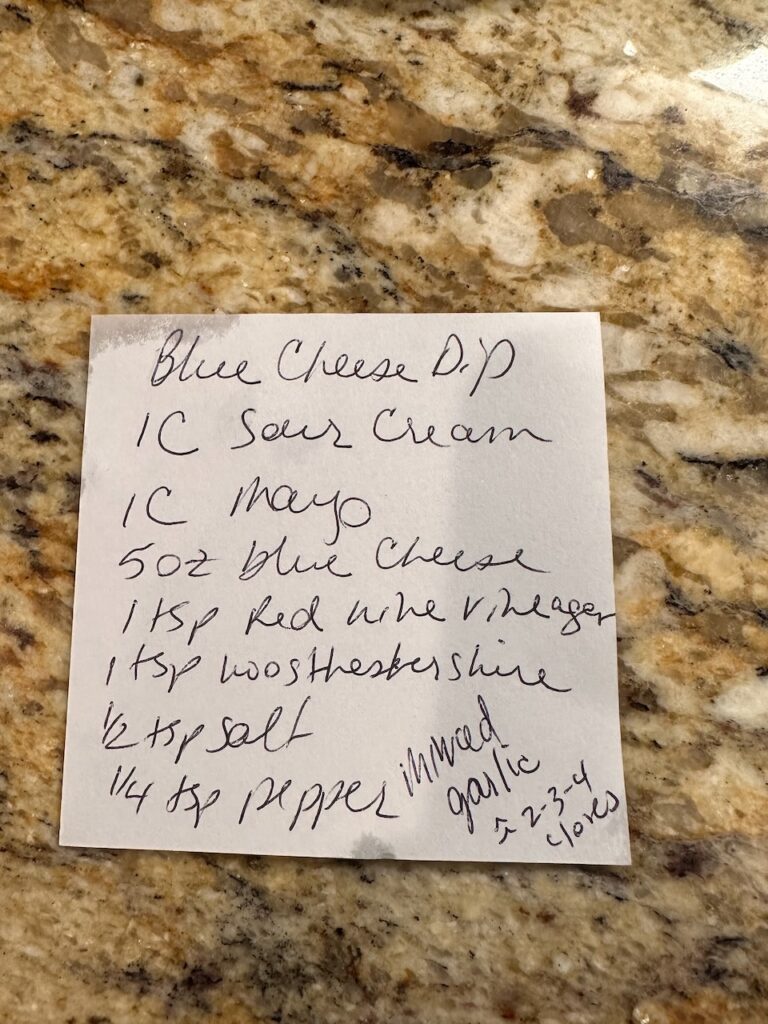 Blue Cheese Dip
1C Sour Cream
1C Mayo
5oz blue Cheese
1 tsp Red wine vineager
1 tsp woosthestershire
1/2 tsp salt
1/4 tsp pepper
minced
garlic
≈ 2-3-4
cloves